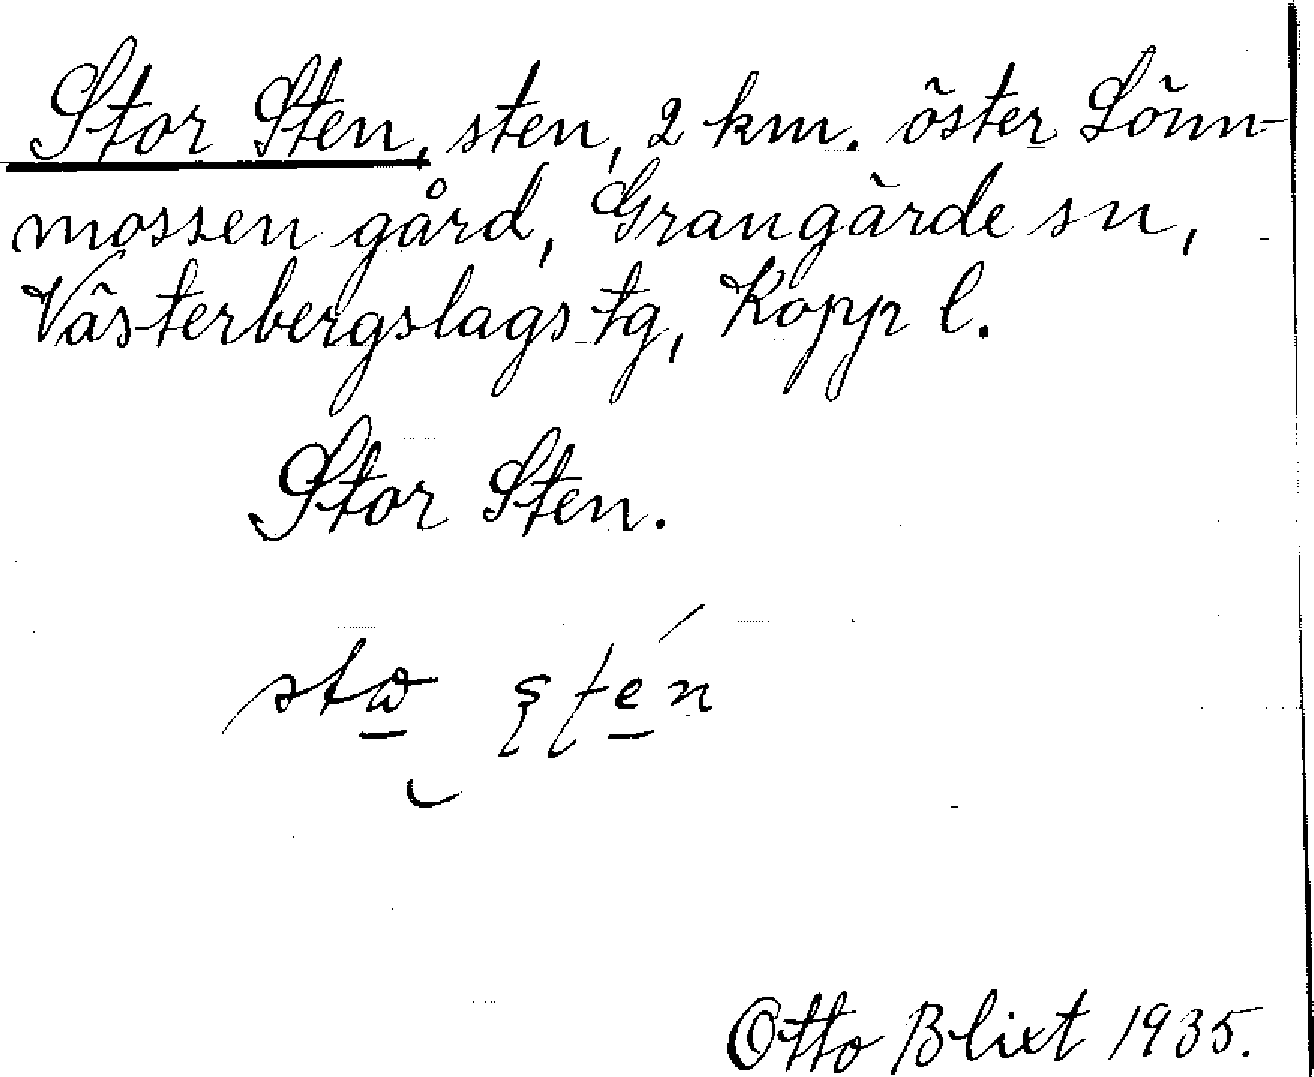 Stor Sten, sten, 2 km. öster Lönn-
mossen gård, Grangärde sn,
Västerbergslags tg, Kopp l.
Stor Sten.
Otto Blixt 1935.